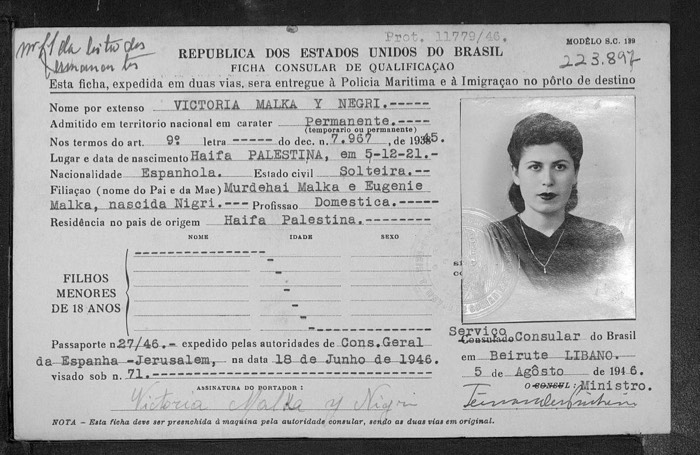 Prot. 11779/46.
MODÊLO S.C. 139
223.897
REPUBLICA DOS ESTADOS UNIDOS DO BRASIL
FICHA CONSULAR DE QUALIFICAÇAO
Esta ficha, expedida em duas vias, sera entregue à Policia Maritima e à Imigraçao no pôrto de destino
Nome por extenso VICTORIA MALKA Y NEGRI.-----
Admitido em territorio nacional em carater Permanente.----
(temporario ou permanente)
Nos termos do art. 9º letra ----- do dec. n. 7.967 , de 19345.
Lugar e data de nascimento Haifa PALESTINA, em 5-12-21.-
Nacionalidade Espanhola. Estado civil Solteira.--
Filiaçao (nome do Pai e da Mae) Murdehai Malka e Eugenie
Malka, nascida Nigri.--- Profissao Domestica.-----
Residência no pais de origem Haifa Palestina.-------
NOME IDADE SEXO
FILHOS
MENORES
DE 18 ANOS
Passaporte n. 27/46.- expedido pelas autoridades de Cons.Geral
da Espanha -Jerusalem, na data 18 de Junho de 1946.
visado sob n. 71.-----
ASSINATURA DO PORTADOR :
Victoria Malka y Nigri
Serviço
Consulado Consular do Brasil
em Beirute LIBANO.
5 de Agôsto de 1946.
O CONSUL: Ministro.
NOTA - Esta ficha deve ser preenchida à maquina pela autoridade consular, sendo as duas vias em original.